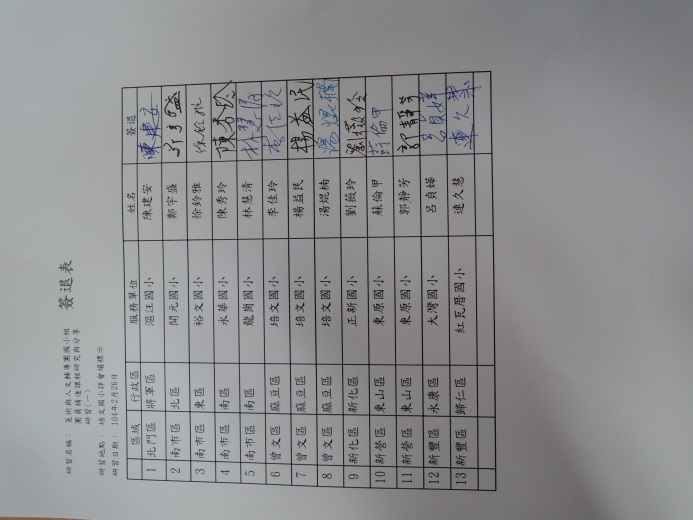 簽退表
研習名稱： 藝術與人文輔導團國小組
團員精進課程研究與分享
研習(一)
研習地點： 培文國小詳會場標示
研習日期： 104年2月26日
區域 行政區 服務單位 姓名 簽退
1 北門區 將軍區 漚汪國小 陳建安 陳建安
2 南市區 北區 開元國小 鄭宇盛
3 南市區 東區 裕文國小 徐鈴雅 徐鈴雅
4 南市區 南區 永華國小 陳秀玲 陳秀玲
5 南市區 南區 龍崗國小 林慧清 林慧清
6 曾文區 麻豆區 培文國小 李佳玲 李佳玲
7 曾文區 麻豆區 培文國小 楊益民 楊益民
8 曾文區 麻豆區 培文國小 湯焜楠 湯焜楠
9 新化區 新化區 正新國小 劉薇玲 劉薇玲
10 新營區 東山區 東原國小 蘇倫甲 倫甲
11 新營區 東山區 東原國小 郭靜芳 郭靜芳
12 新豐區 永康區 大灣國小 呂貞嬋 呂貞嬋
13 新豐區 歸仁區 紅瓦厝國小 連久慧 連久慧